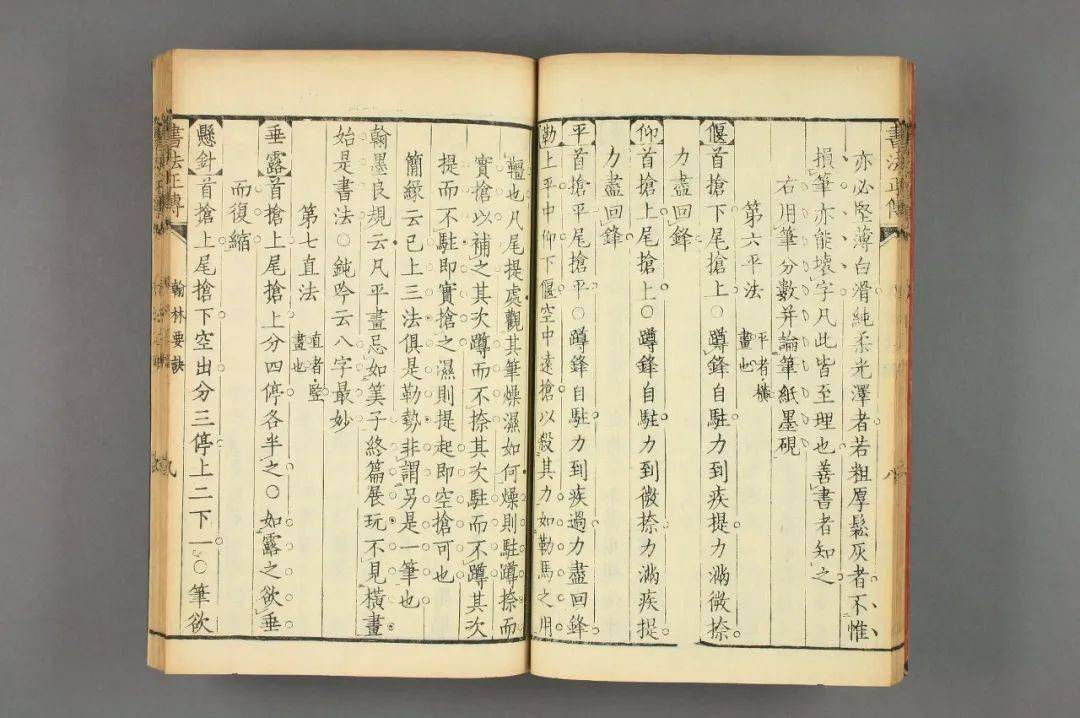 亦必堅薄白滑純柔光澤者若粗厚鬆灰者不惟
損筆亦能壞字凡此皆至理也善書者知之
右用筆分數并論筆紙墨硯
第六平法 平者橫畫也
偃 首搶下尾搶上○蹲鋒自駐力到疾提力滿微捺
力盡回鋒
仰 首搶上尾搶上○蹲鋒自駐力到微捺力滿疾提
力盡回鋒
平 首搶平尾搶平○蹲鋒自駐力到疾過力盡回鋒
勒 上平中仰下偃空中遠搶以殺其力如勒馬之用
韁也凡尾提處觀其筆燥濕如何燥則駐蹲捺而
實搶以補之其次蹲而不捺其次駐而不蹲其次
提而不駐即實搶之濕則提起即空搶可也
簡緣云已上三法俱是勒勢非謂另是一筆也
翰墨良規云凡平畫忌如筭子終篇展玩不見橫畫
始是書法○鈍吟云八字最妙
第七直法 直者竪畫也
垂露 首搶上尾搶上分四停各半之○如露之欲垂
而復縮
懸針 首搶上尾搶下空出分三停上二下一○筆欲
書法正傳
翰林要訣
書法正傳
八